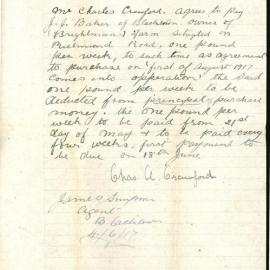 Mr Charles Crawford, agrees to pay
J. J. Baker of Blacktown, owner of
(Brightman) Farm situated on
Richmond Road, one pound
per week, to such time as agreement
to purchase on first of August 1917
comes into operation. the said
one pound per week to be
deducted from principal purchase
money. the one pound per
week to be paid from 21st
day of may & to be paid every
four weeks, first payment to
be due on 18th June
Chas A. Crawford
James Simpson
Agent
4/6/17